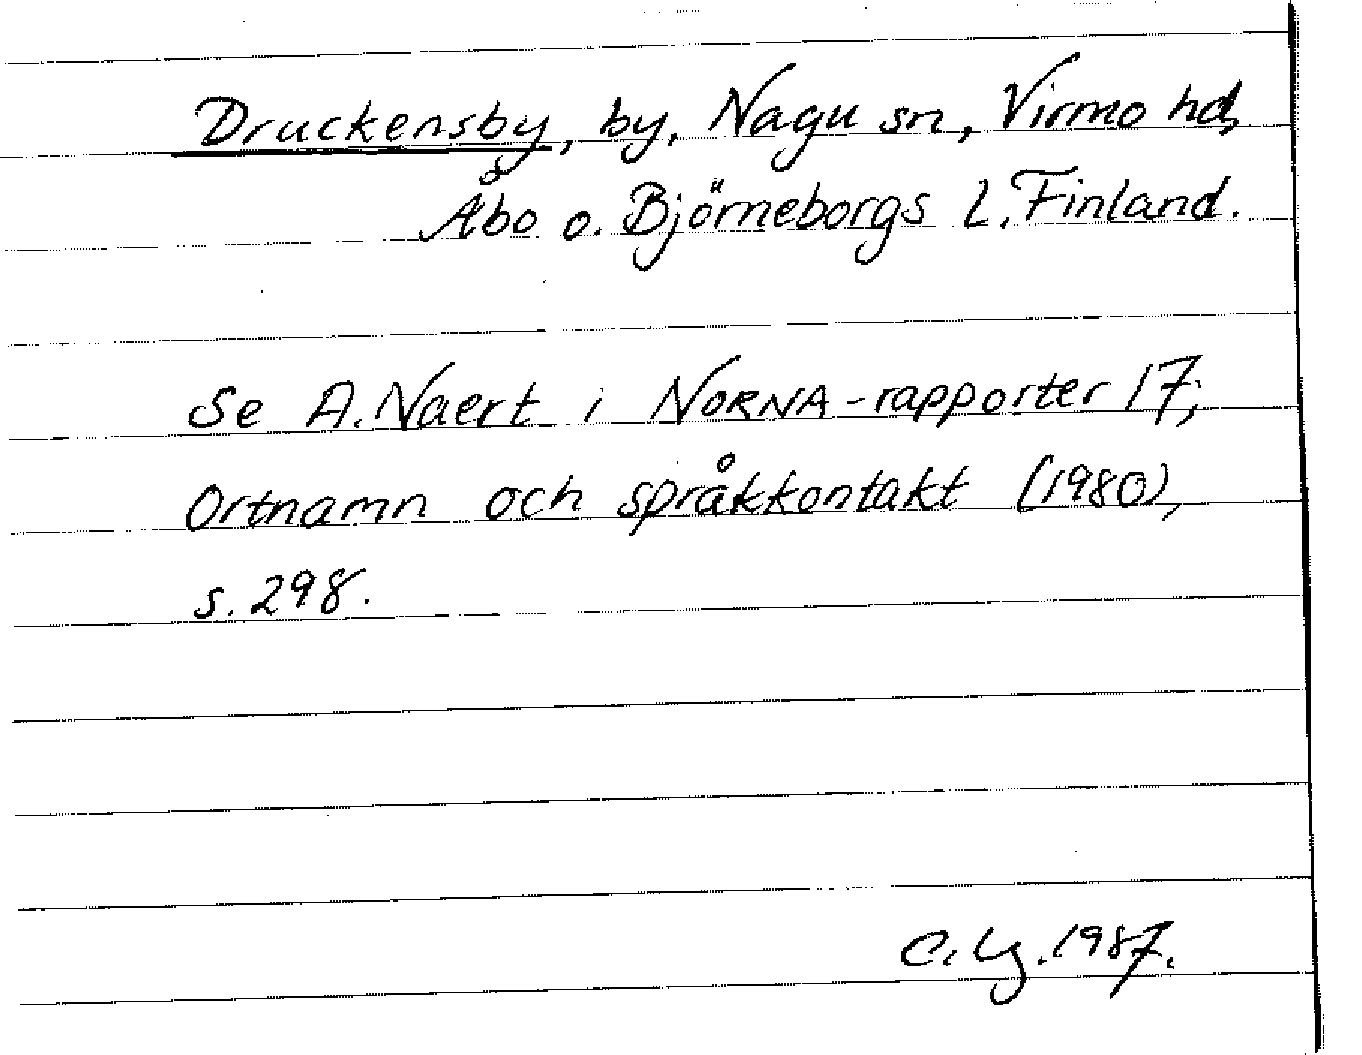 Druckensby, by, Nagu sn, Virmo hd,
Åbo o. Björneborgs l. Finland.
Se A. Naert i NORNA-rapporter 17;
Ortnamn och språkkontakt (1980),
s. 298.
C. Lg. 1987.